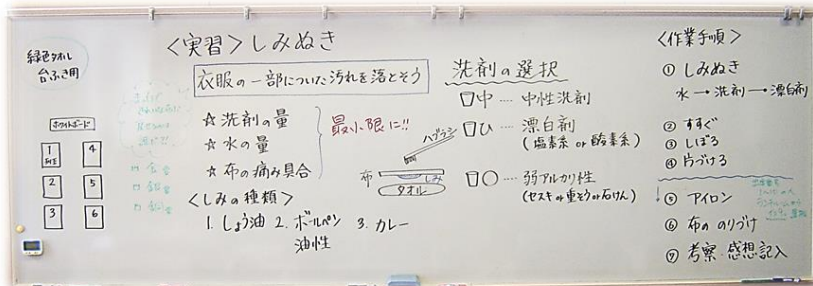 緑色タオル
台ふき用
ホワイトボード
1
4
2
5
3
6
<実習>しみぬき
衣服の一部についた汚れを落とそう
☆洗剤の量
☆水の量
☆布の痛み具合
最小限に!!
<しみの種類>
1. しょう油 2. ボールペン 3. カレー
油性
洗剤の選択
中 ---- 中性洗剤
ひ ---- 漂白剤
(塩素系 or 酸素系)
○ ---- 弱アルカリ性
(セスキor重そうor石けん)
ハブラシ
布
しみ
タオル
<作業手順>
① しみぬき
水→洗剤→漂白剤
② すすぐ
③ しぼる
④ 片づけろ
↓⑤ アイロン
⑥ 布ののりづけ
⑦ 考察・感想記入